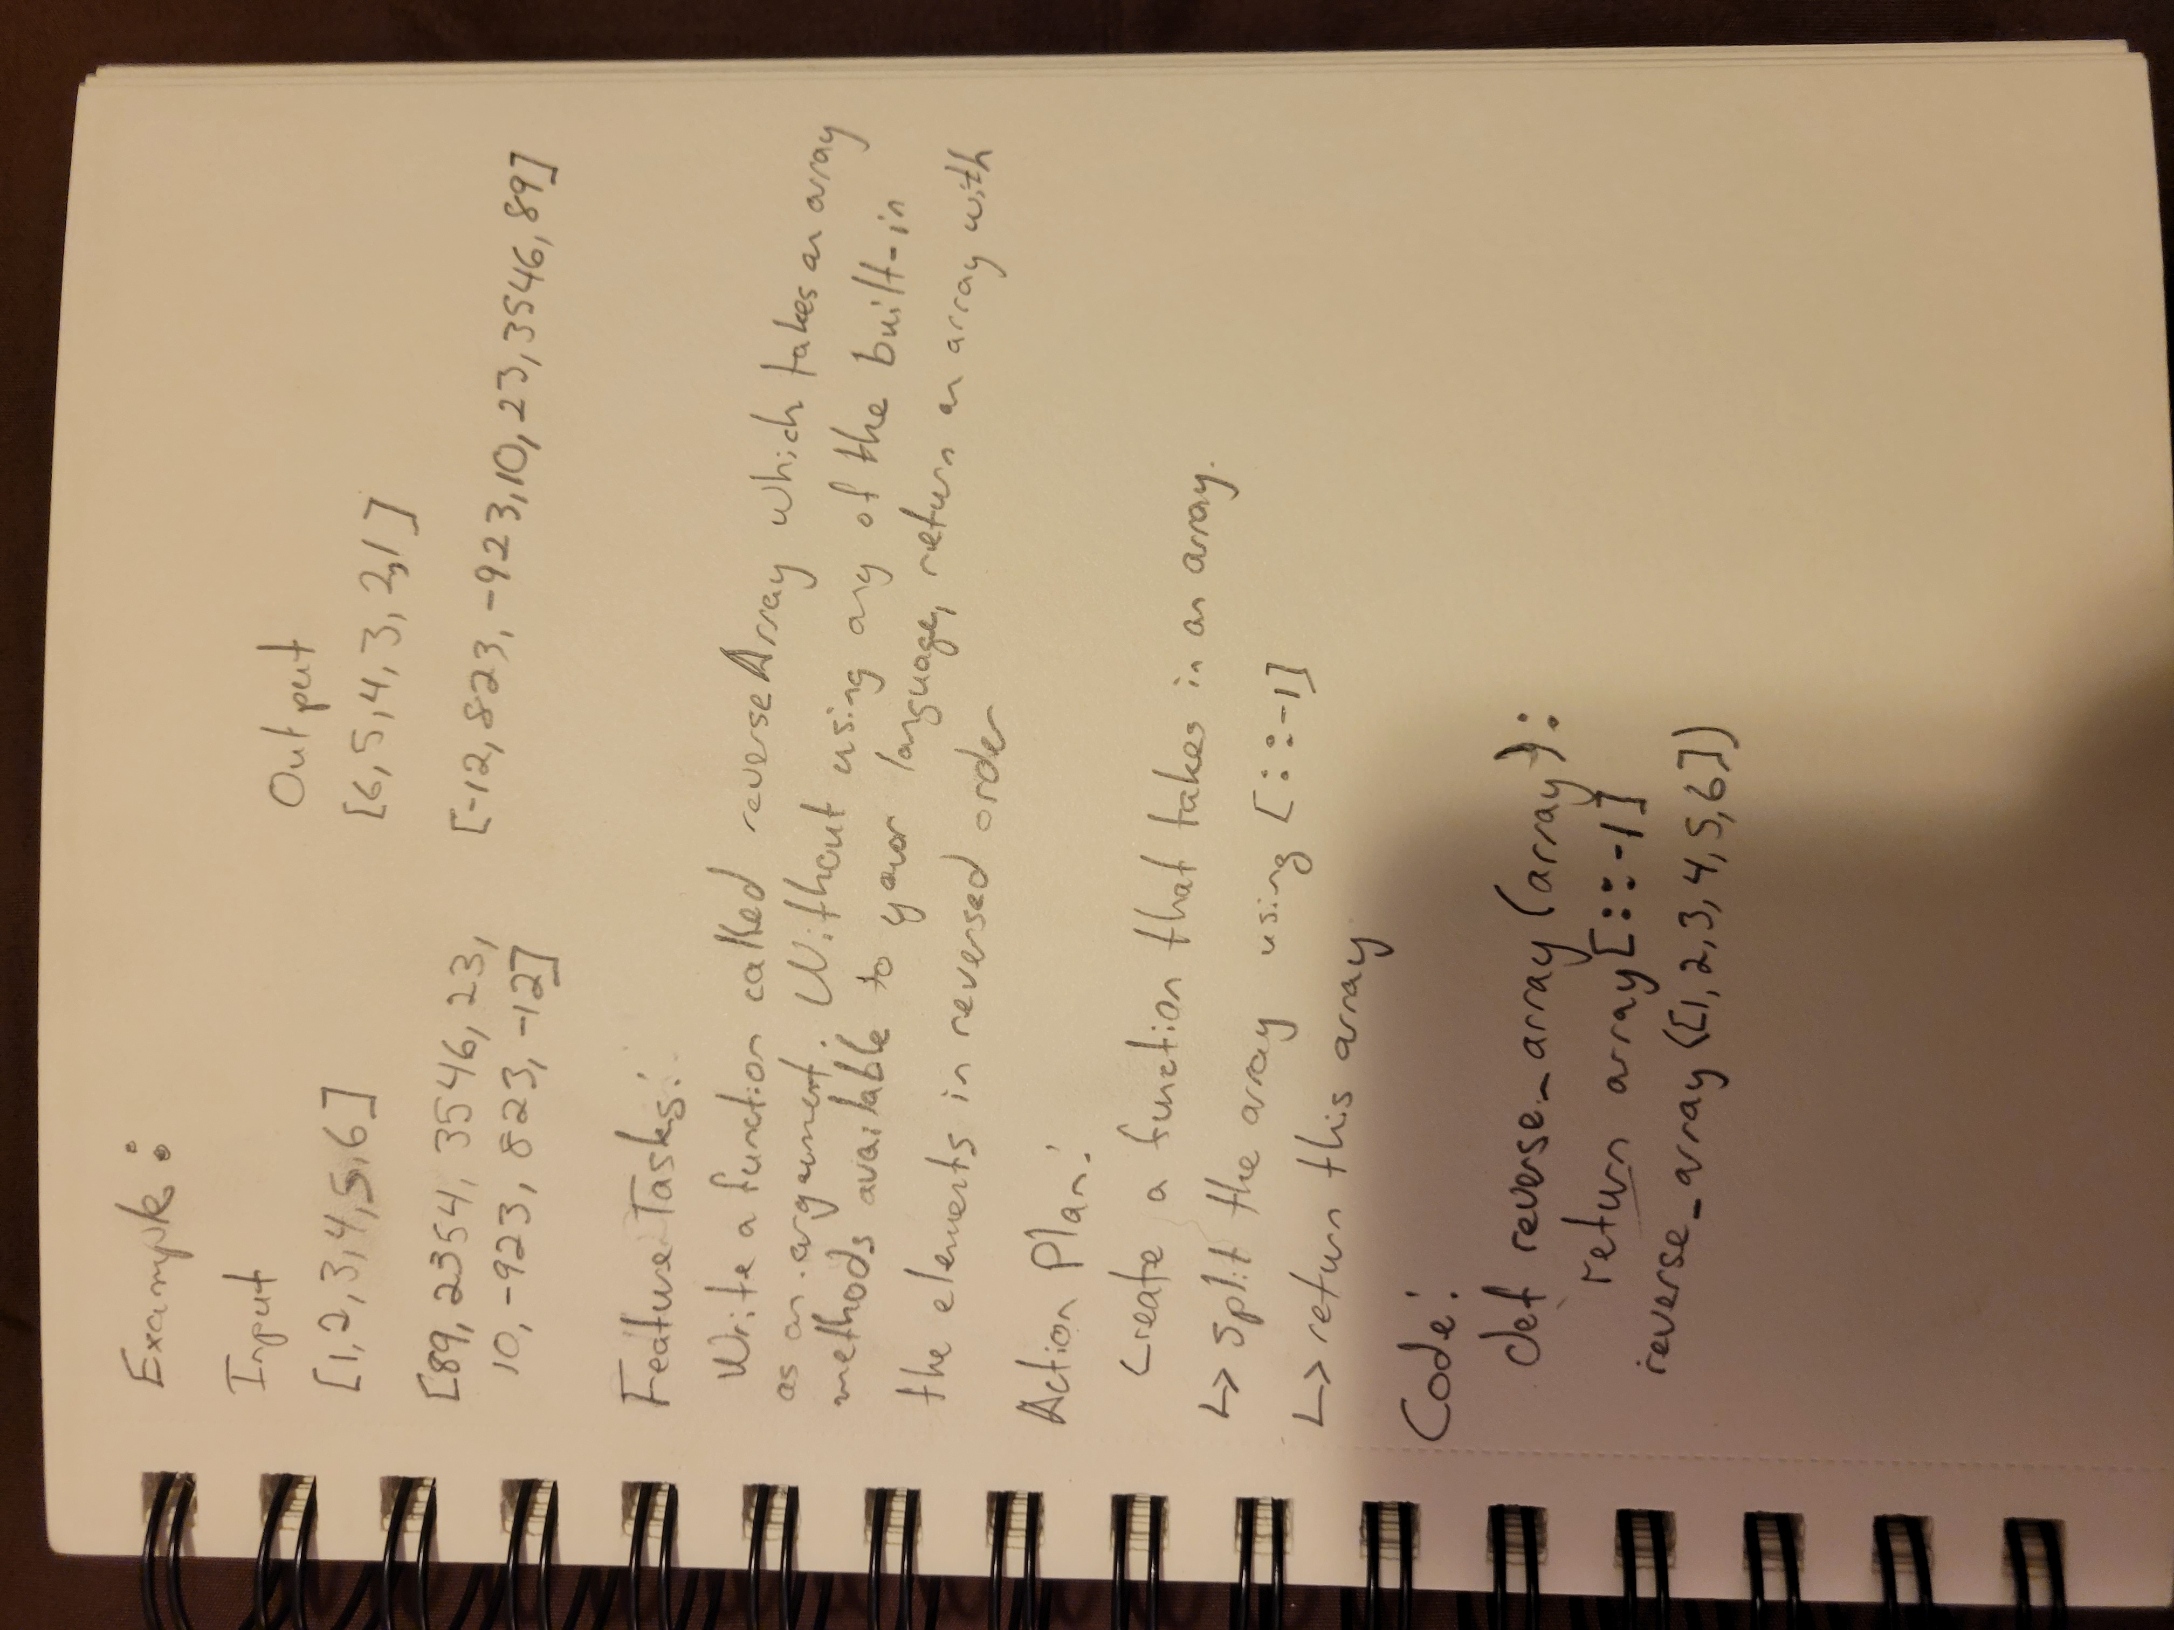 Example:
Input
[1,2,3,4,5,6]
Output
[6,5,4,3,2,1]
[89, 2354, 3546, 23,
10, -923, 823, -12]
[-12, 823, -923, 10, 23, 3546, 89]
Feature Tasks:
Write a function called reverseArray which takes an array
as an argument. Without using any of the built-in
methods available to your language, return an array with
the elements in reversed order
Action Plan:
Create a function that takes in an array.
↳ split the array using [::-1]
↳ return this array
Code:
def reverse_array(array):
return array[::-1]
reverse_array([1,2,3,4,5,6])